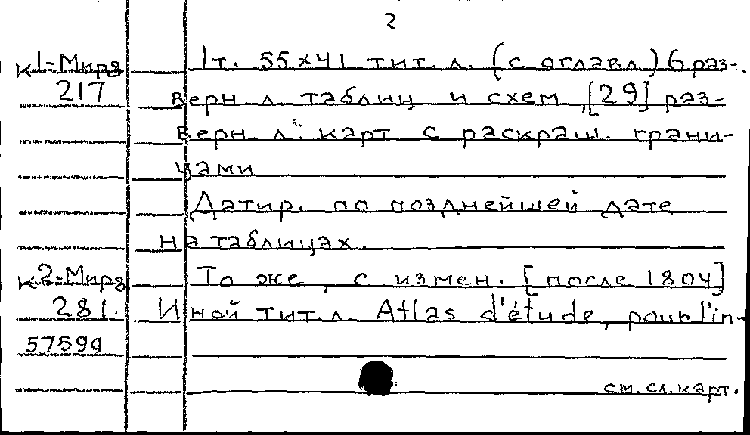 2
К1-Мира 1т. 55×41 тит. л. (с оглавл) 6 раз-
217 верн. л. таблиц и схем, [29] раз-
верн. л. карт с раскраш. грани-
цами
Датир. по позднейшей дате
на таблицах.
К2-Мира То же, с измен. [после 1804]
281. Иной тит. л. Atlas d'étude, pour l'in-
57599
см. сл. карт.